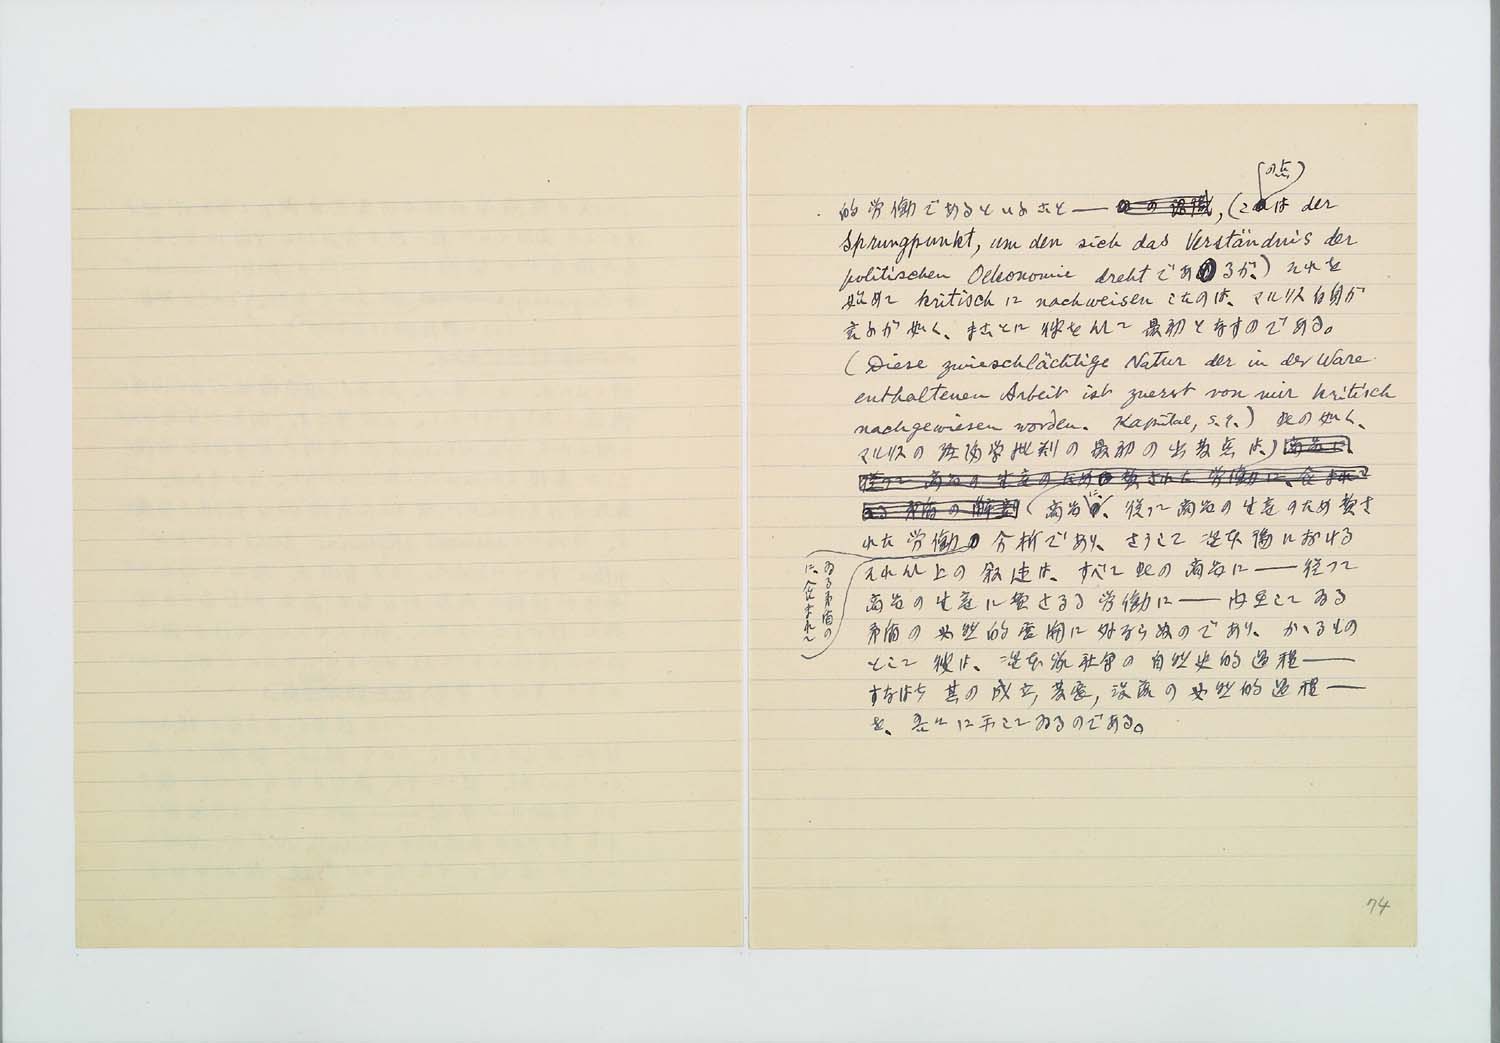 (の点)
的労働であるといふこと——の認識,(こは der
Sprungpunkt, um den sich das Verständnis der
politischen Oekonomie dreht であるが、) それを
始めて kritisch に nachweisen したのは、マルクス自身が
言ふが如く、まさに彼を以て最初となすのである。
(Diese zwieschlächtige Natur der in der Ware
enthaltenen Arbeit ist zuerst von mir kritisch
nachgewiesen worden. Kapital, S. 9.) 此の如く、
マルクスの経済学批判の最初の出発点は、) 商品に、
従つて商品の生産のため費された労働に、含まれて
ゐる矛盾の解剖 (商品に、従つて商品の生産のため費さ
れた労働 分析であり、さうして資本論における
それ以上の叙述は、すべて此の商品に——従つて
商品の生産に費さるる労働に——内在してゐる
矛盾の必然的展開に外ならぬのであり、かゝるもの
として彼は、資本家社会の自然史的過程——
すなはち其の成立,発展,没落の必然的過程——
を、吾々に示してゐるのである。
に、含まれて
ゐる矛盾の
74